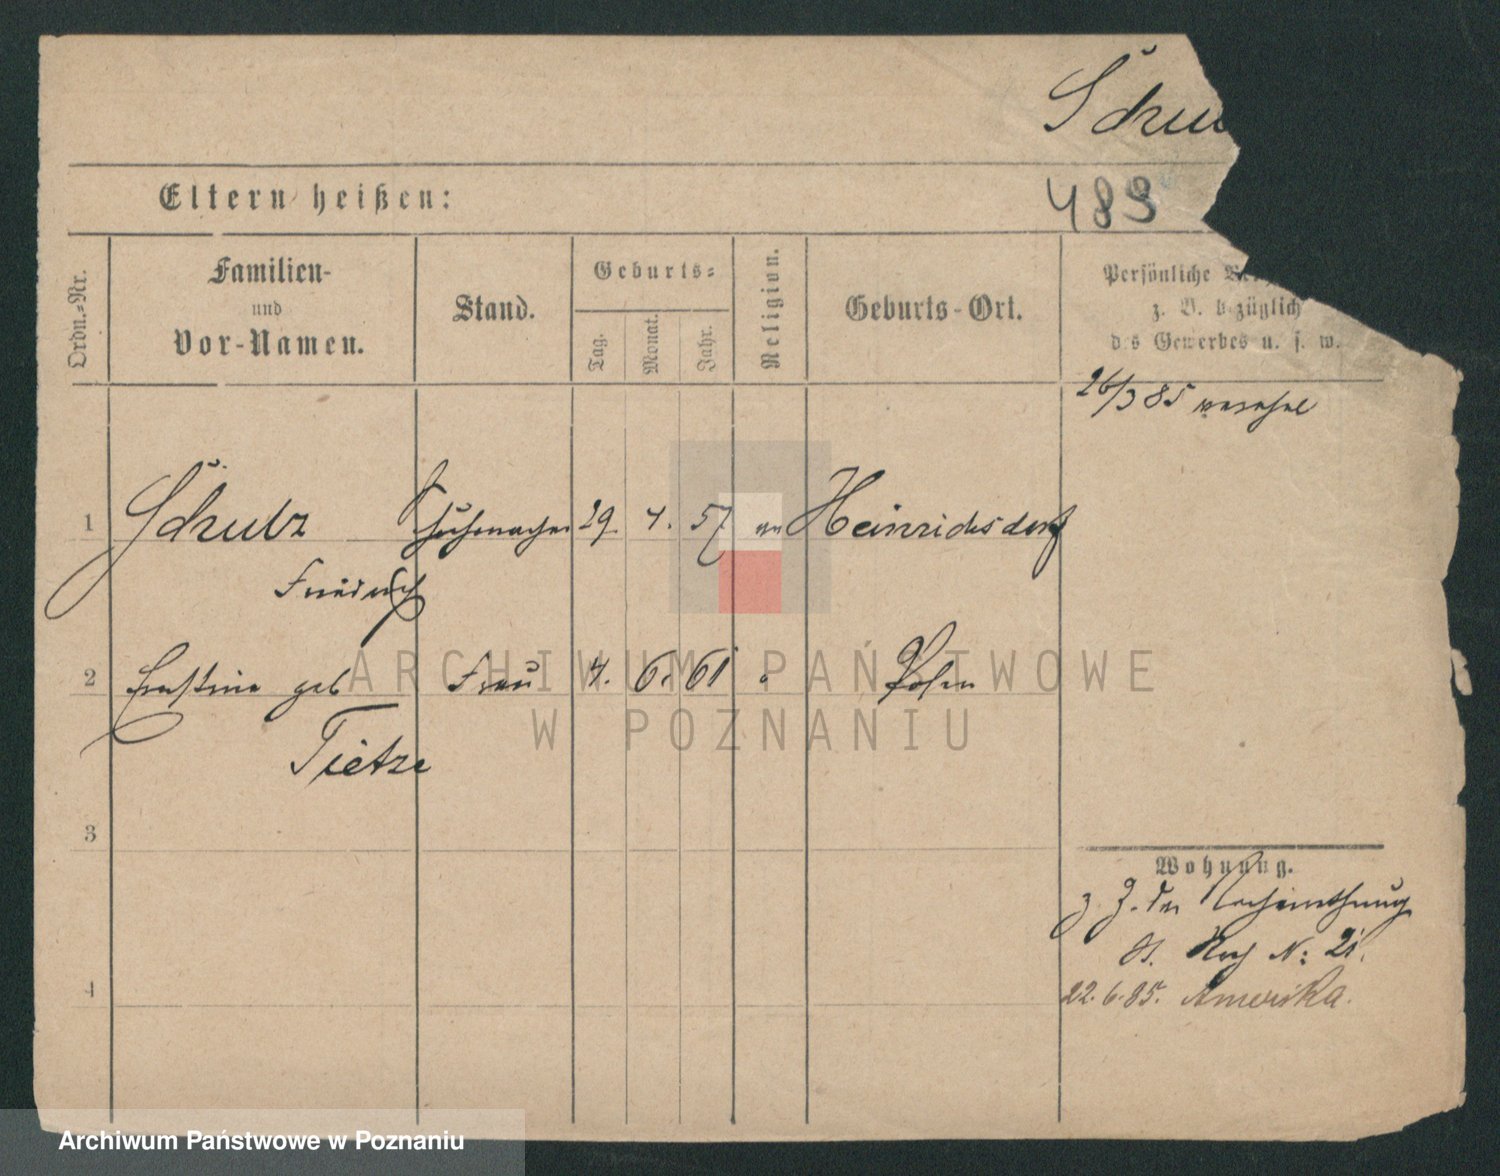 Schu
Eltern heißen:
489
Ordn.-Nr.
Familien-
und
Vor-Namen.
Stand.
Geburts-
Tag.
Monat.
Jahr.
Religion.
Geburts-Ort.
Persönliche
z. B. bezüglich
des Gewerbes u. s. w.
26/3 85
1 Schulz Schuhmacher 29. 4. 57 Heinrichsdorf
Friedrich
2 Ernstine geb Frau 4. 6. 61 Posen
Tietze
3
4
Wohnung.
z. Z. der Verheirathung
St. N: 21.
22. 6. 85. Amerika.
ARCHIWUM PAŃSTWOWE
W POZNANIU
Archiwum Państwowe w Poznaniu